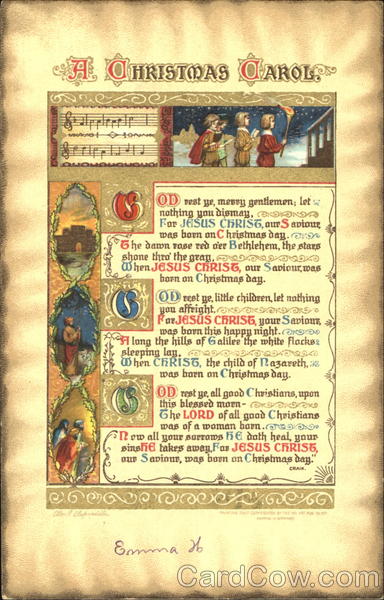 A CHRISTMAS CAROL.
GOD rest ye, merry gentlemen; let
nothing you dismay,
For JESUS CHRIST, our Saviour,
was born on Christmas day.
The dawn rose red o'er Bethlehem, the stars
shone thro' the gray,
When JESUS CHRIST, our Saviour, was
born on Christmas day.
GOD rest ye, little children, let nothing
you affright,
For JESUS CHRIST, your Saviour,
was born this happy night.
Along the hills of Galilee the white flocks
sleeping lay,
When CHRIST, the child of Nazareth,
was born on Christmas day.
GOD rest ye, all good Christians, upon
this blessed morn
The LORD of all good Christians
was of a woman born.
Now all your sorrows HE doth heal, your
sins HE takes away, For JESUS CHRIST,
our Saviour, was born on Christmas day."
CRAIK.
Emma H
CardCow.com